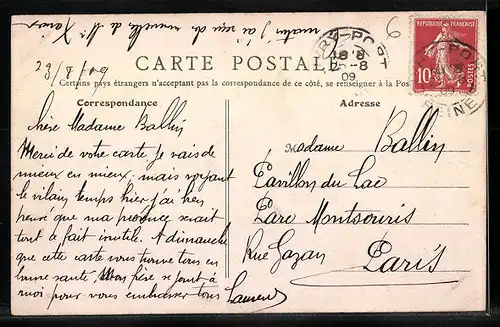 matin j'ai reçu de nouvelle de Mr
23/8/09
CARTE POSTALE
Certains pays étrangers n'acceptant pas la correspondance de ce côté, se renseigner à la Pos
Correspondance
Adresse
REPUBLIQUE FRANÇAISE
10
POSTES
-8
09
SEINE
Chère Madame Ballin
Merci de votre carte je vais de
mieux en mieux, mais voyant
le vilain temps hier j'ai bien
pensé que ma présence serait
tout à fait inutile. A dimanche
que cette carte vous trouve tous en
bonne santé, Mon frère se joint à
moi pour vous embrasser tous Laurent
Madame Ballin
Pavillon du Lac
Parc Montsouris
Rue Gazan
Paris